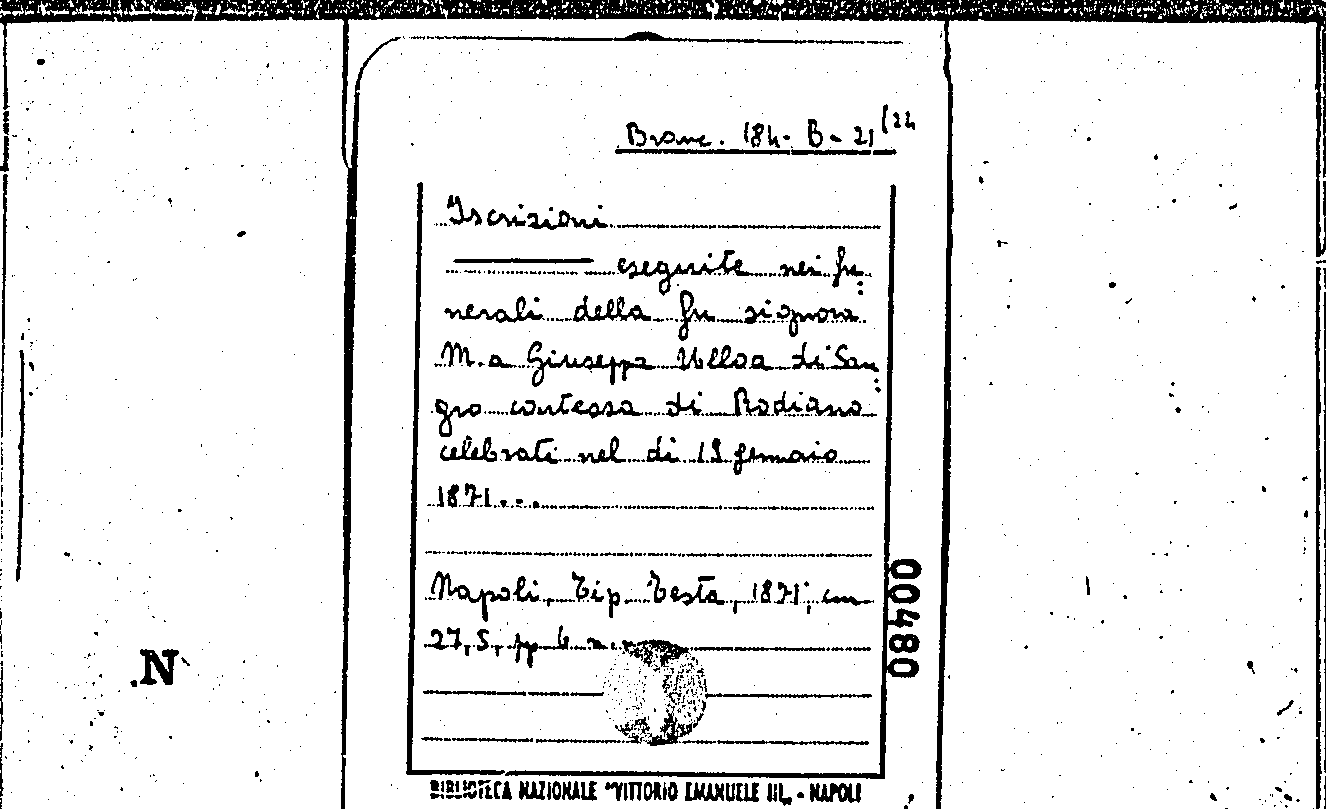 Branc. 184- B- 21(24
Iscrizioni
eseguite nei fu:
nerali della fu signora
M.a Giuseppa Ulloa di San:
gro contessa di Rodiano
celebrati nel di 19 gennaio
1871...
Napoli, Tip. Testa, 1871; cm
27,5, pp 4 n.
00480
N
BIBLIOTECA NAZIONALE "VITTORIO EMANUELE III„ - NAPOLI